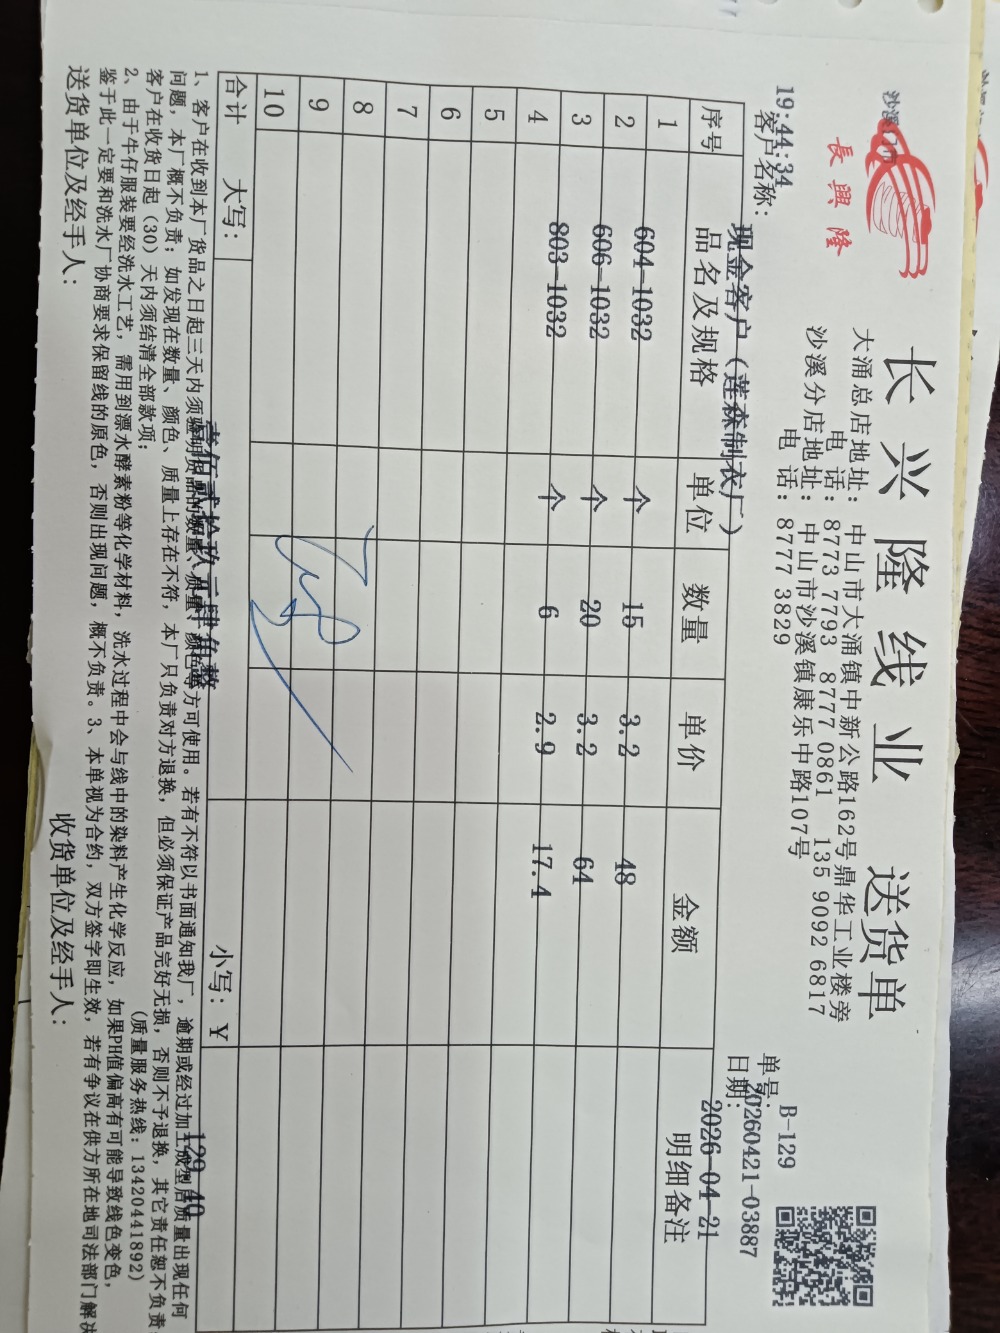 長興隆
长兴隆线业 送货单
大涌总店地址：中山市大涌镇中新公路162号鼎华工业楼旁
电 话：8773 7793 8777 0861 135 9092 6817
沙溪分店地址：中山市沙溪镇康乐中路107号
电 话：8777 3829
B-129
单号：20260421-03887
日期：2026-04-21
19:44:34
客户名称：现金客户（莲森制衣厂）
序号 品名及规格 单位 数量 单价 金额 明细备注
1 604-1032 个 15 3.2 48
2 606-1032 个 20 3.2 64
3 803-1032 个 6 2.9 17.4
4
5
6
7
8
9
10
合计 大写：壹佰贰拾玖元肆角整 小写：¥ 129.40
1、客户在收到本厂货品之日起三天内须验明货品的数量、质量、颜色等方可使用。若有不符以书面通知我厂，逾期或经过加工成型后质量出现任何
问题，本厂概不负责；如发现在数量、颜色、质量上存在不符，本厂只负责对方退换，但必须保证产品完好无损，否则不予退换，其它责任恕不负责
客户在收货日起（30）天内须结清全部款项；（质量服务热线：13420441892）
2、由于牛仔服装要经洗水工艺，需用到漂水酵素粉等化学材料，洗水过程中会与线中的染料产生化学反应，如果PH值偏高有可能导致线色变色，
鉴于此一定要和洗水厂协商要求保留线的原色，否则出现问题，概不负责。3、本单视为合约，双方签字即生效，若有争议在供方所在地司法部门解决
送货单位及经手人： 收货单位及经手人：